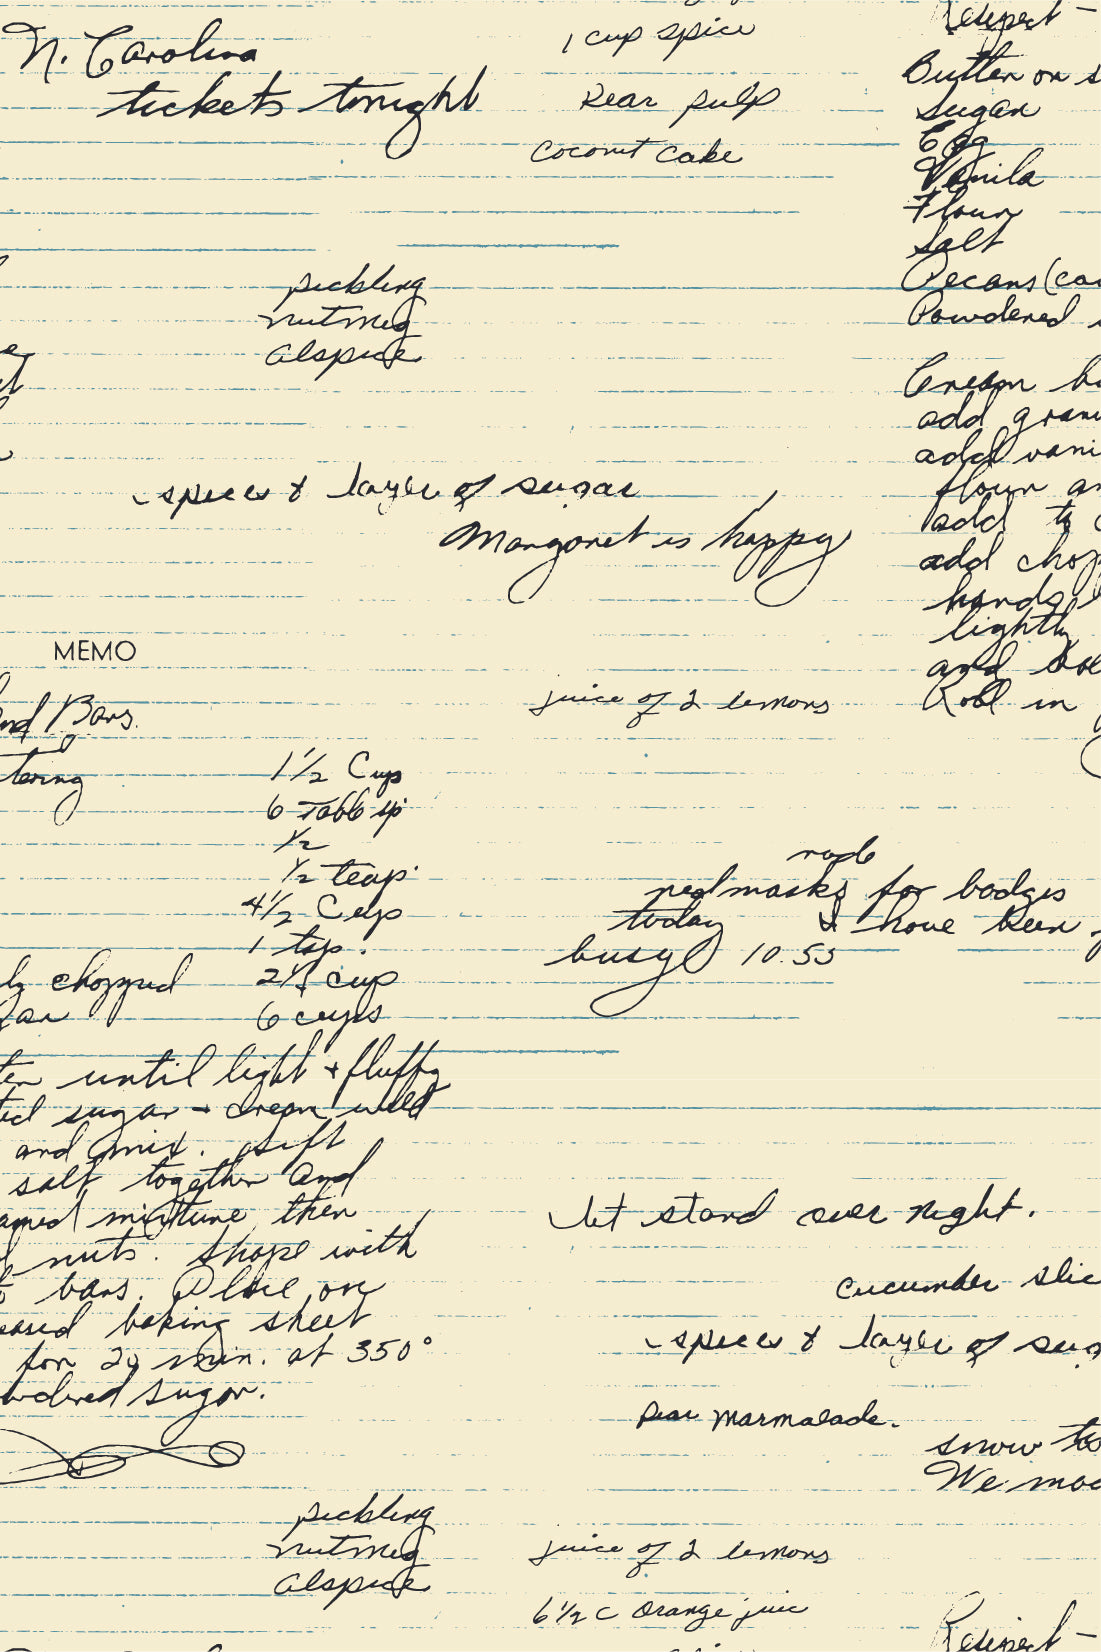 N. Carolina
tickets tonight
1 cup spice
Pear pulp
coconut cake
Butter or s
sugar
Egg
Vanila
Flour
Salt
Pecans (co
Powdered
pickling
nutmeg
alspice
Cream
add gran
add vani
flour an
add to
add chop
hands
lightly
and
Roll in
spices & layer of sugar
Margaret is happy
MEMO
nd Bars.
juice of 2 lemons
tering
1 1/2 Cup
6 Tabl sp
1/2
1/2 teasp.
4 1/2 Cup
1 tsp.
ly chopped 2 1/2 cup
gar 6 cups
made
masks for badges
today I have been
busy 10:55
ter until light + fluffy
ted sugar + cream well
and mix. sift
salt together and
amed mixture, then
nuts. Shape with
bars. Place on
eased baking sheet
for 20 min. at 350°
wdered sugar.
let stand over night.
cucumber slic
spices & layer of sug
Pear Marmalade.
snow to
We mad
pickling
nutmeg
alspice
juice of 2 lemons
6 1/2 C orange juic